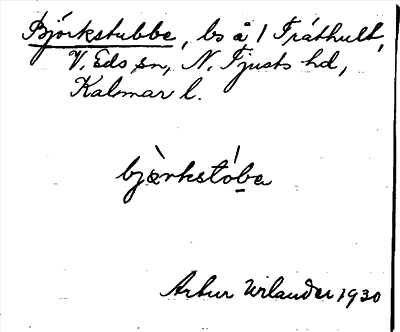 Björkstubbe, bs å 1 Tråthult,
V. Eds sn, N. Tjusts hd,
Kalmar l.
bjὰrkstóba
Artur Wilander 1930